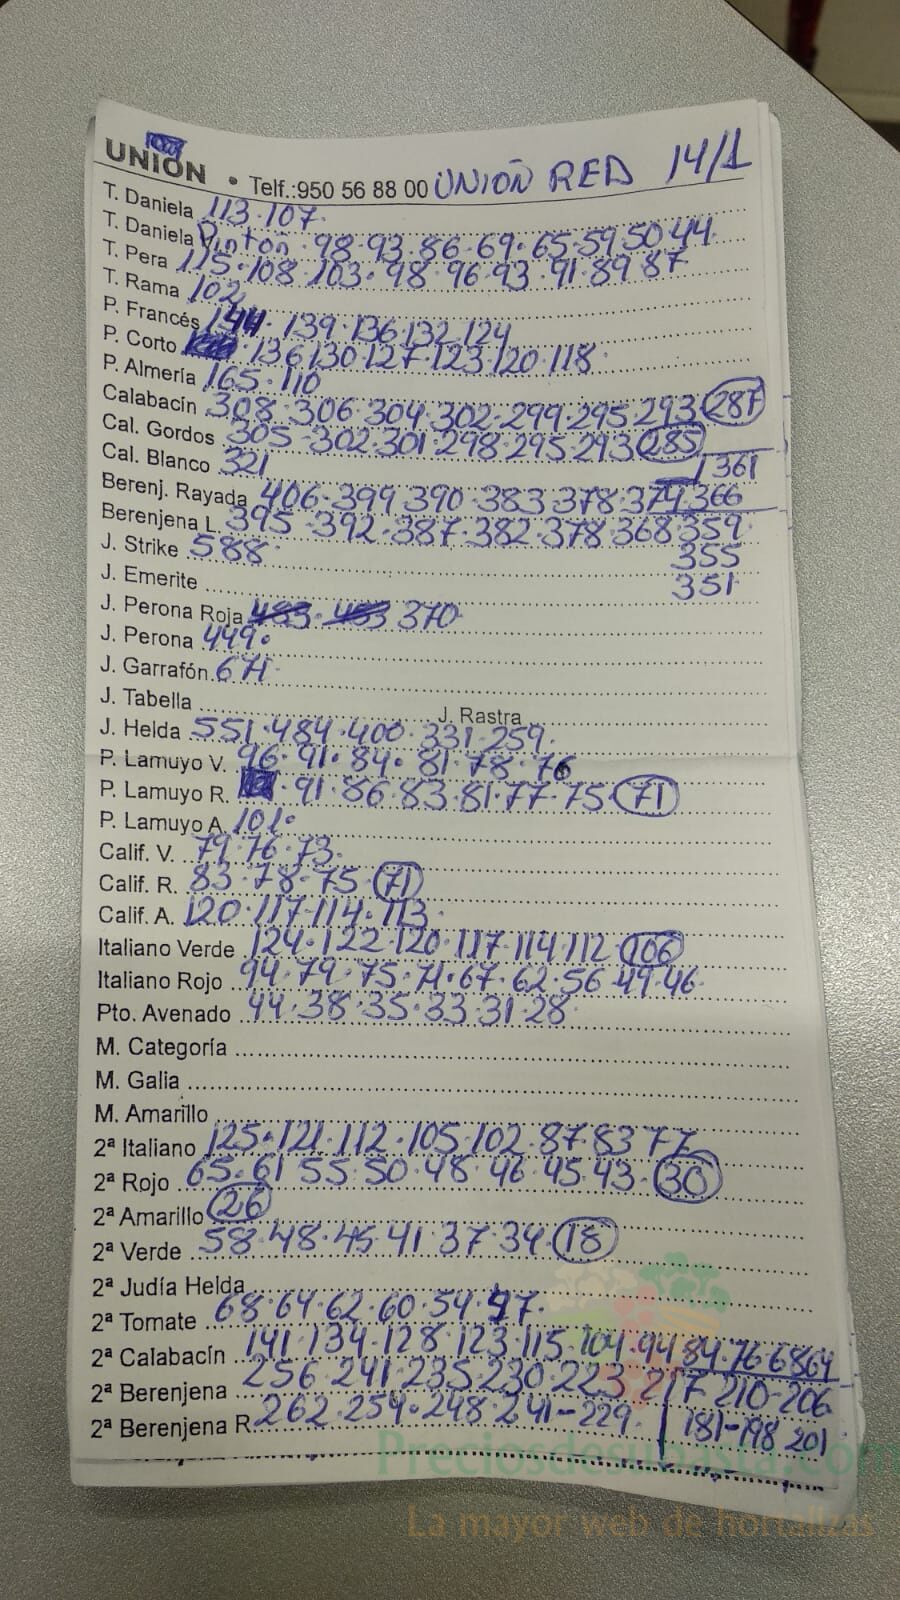 UNIÓN • Telf.:950 56 88 00 UNIÓN RED 14/1
T. Daniela 113·107·
T. Daniela Pintón·98·93·86·69·65·59 50·44·
T. Pera 115·108·103·98·96·93·91·89 87
T. Rama 102
P. Francés 144·139·136 132·124
P. Corto ·136 130·127·123·120·118·
P. Almería 165·110
Calabacín 308·306·304·302·299·295·293 287
Cal. Gordos 305-302·301·298·295·293 285
Cal. Blanco 321
361
Berenj. Rayada 406·399 390·383·378·374 366
Berenjena L. 395·392·387·382·378·368 359
355
351
J. Strike 588
J. Emerite
J. Perona Roja 483·453 370
J. Perona 449·
J. Garrafón 671
J. Tabella J. Rastra
J. Helda 551·484·400·331·259·
P. Lamuyo V. 96·91·84·81·78·76
P. Lamuyo R. ·91·86·83·81·77·75 71
P. Lamuyo A. 101·
Calif. V. 79·76·73·
Calif. R. 83·78·75 71
Calif. A. 120·117·114·113·
Italiano Verde 124·122·120·117·114·112 106
Italiano Rojo 94·79·75·71·67·62·56·49·46·
Pto. Avenado 44·38·35·33·31·28·
M. Categoría
M. Galia
M. Amarillo
2ª Italiano 125·121·112·105·102·87·83 77
2ª Rojo 65·61 55·50·48·46·45·43· 30
2ª Amarillo 26
2ª Verde 58·48·45·41·37·34· 18
2ª Judía Helda
2ª Tomate 68·64·62·60·54·47·
2ª Calabacín 141·134·128·123·115·104·94 84·76·68 64
2ª Berenjena 256·241·235·230·223 217 210-206
2ª Berenjena R. 262·254·248·241-229· 181-198 201
Preciosdesubasta.com
La mayor web de hortalizas